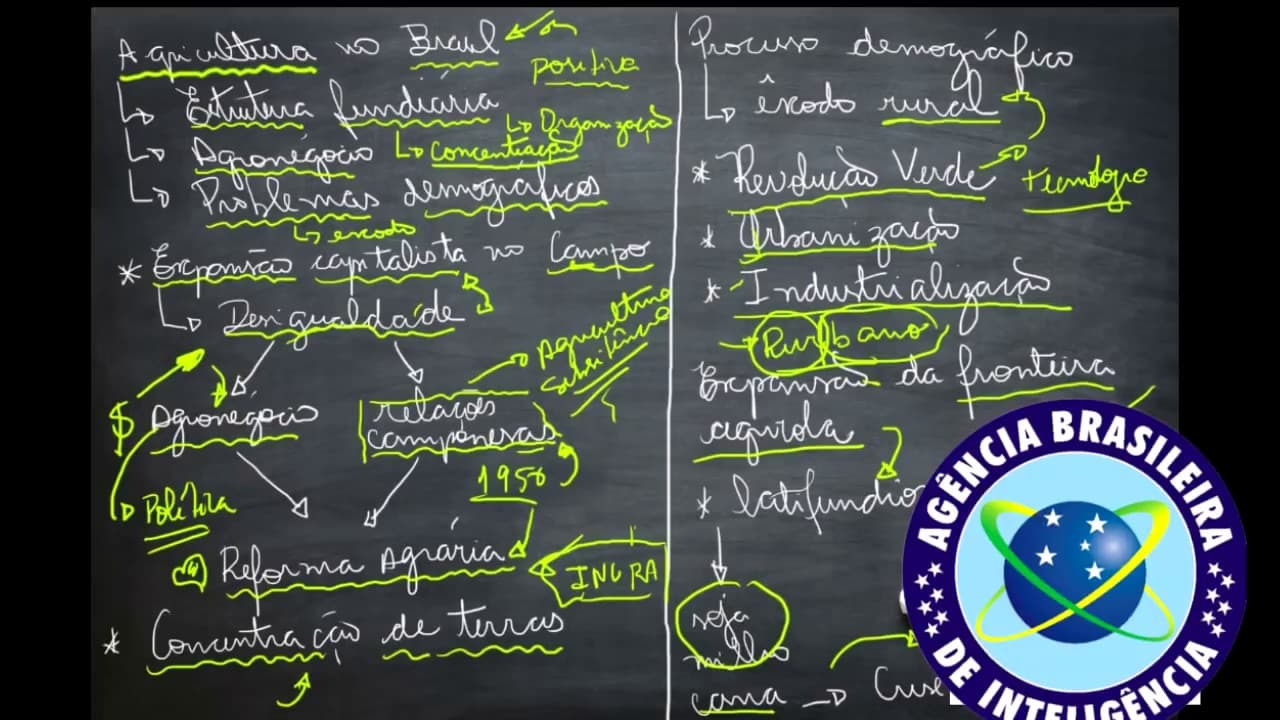 Agricultura no Brasil
positiva
Estrutura fundiária
Organização
Agronégocio
Concentração
Problemas demográficos
êxodo
* Expansão capitalista no Campo
Desigualdade
Agricultura
$ Agronégocio
relações
camponesas
1950
Política
Reforma Agrária
INCRA
* Concentração de terras
Processo demográfico
êxodo rural
* Revolução Verde
tecnologia
* Urbanização
* Industrialização
Rur bano
Expansão da fronteira
agrícola
* latifundio
soja
milho
cana
AGÊNCIA BRASILEIRA
DE INTELIGÊNCIA